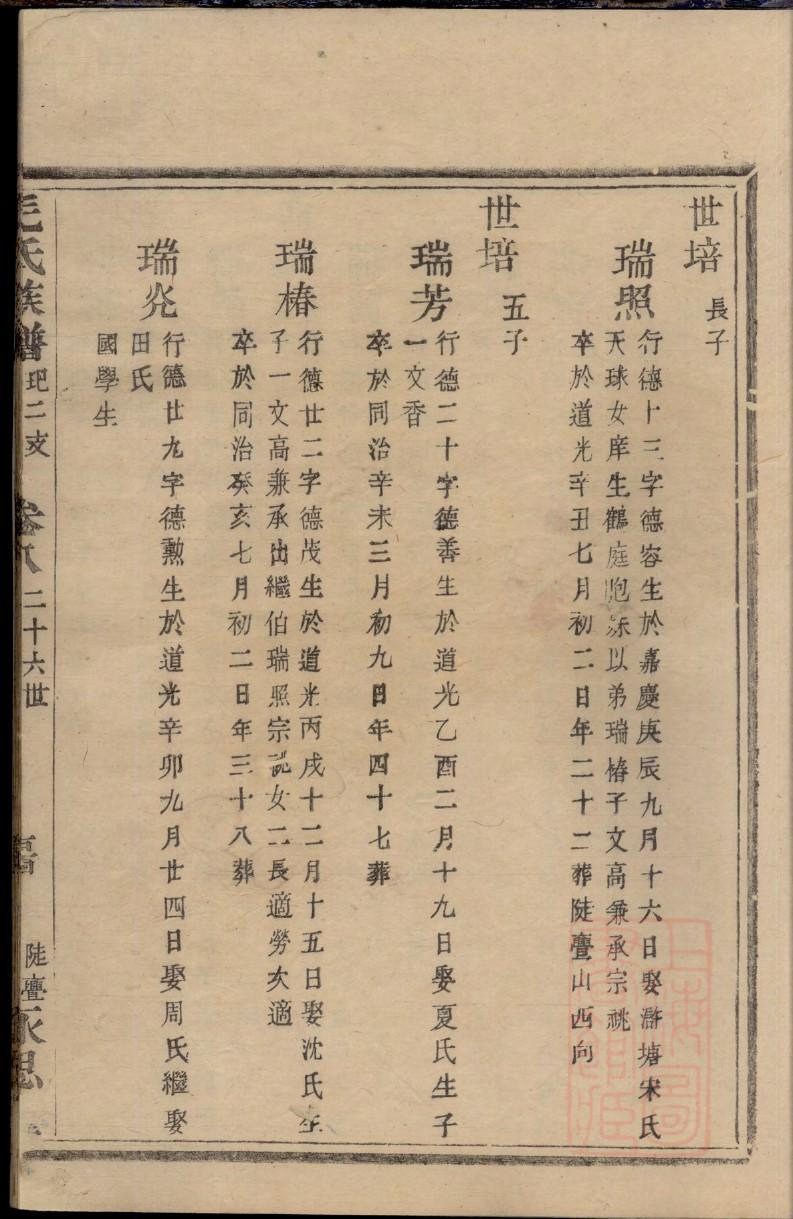 世培 長子
瑞照
行德十三字德容生於嘉慶庚辰九月十六日娶滸塘宋氏
天球女庠生鶴庭胞妹以弟瑞椿子文高兼承宗祧
卒於道光辛丑七月初二日年二十二葬陡亹山西向
世培 五子
瑞芳
行德二十字德善生於道光乙酉二月十九日娶夏氏生子
一文香
卒於同治辛未三月初九日年四十七葬
瑞椿
行德廿二字德茂生於道光丙戌十二月十五日娶沈氏生
子一文高兼承出繼伯瑞照宗祧女二長適勞次適
卒於同治癸亥七月初二日年三十八葬
瑞光
行德廿九字德勲生於道光辛卯九月廿四日娶周氏繼娶
田氏
國學生
毛氏族譜 玘二支 卷八 二十六世 陡亹永思